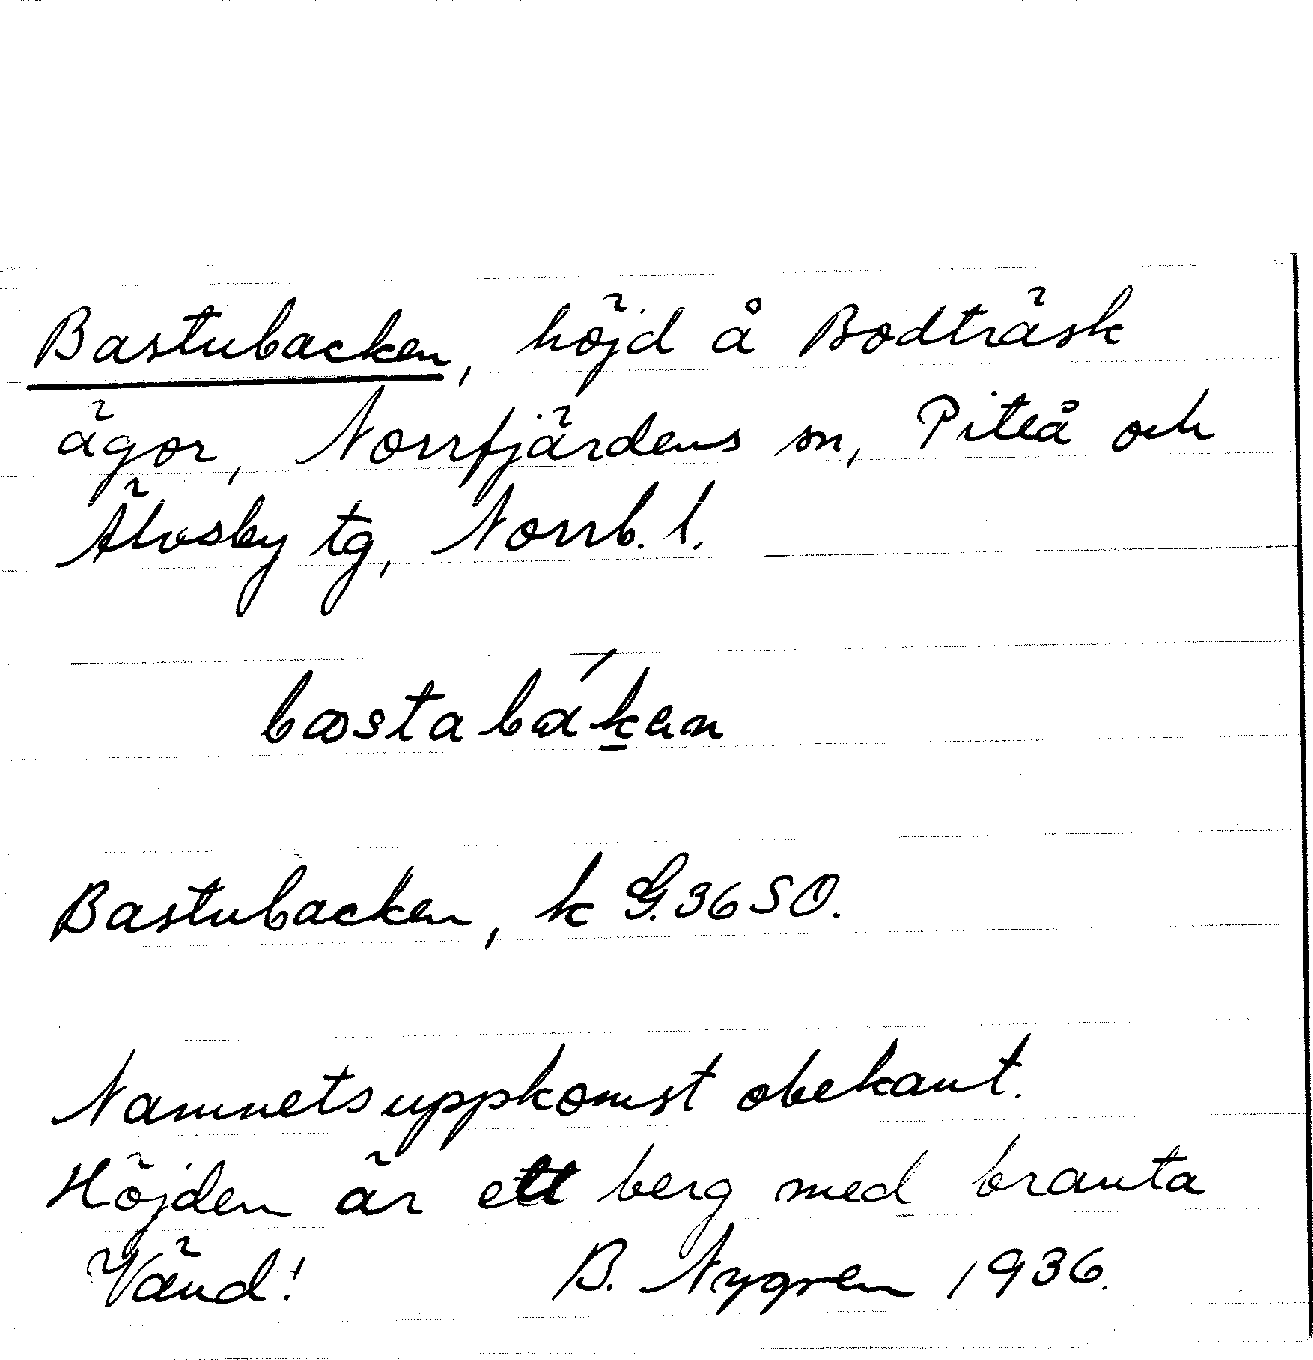 Bastubacken, höjd å Bodträsk
ägor, Norrfjärdens sn, Piteå och
Älvsby tg, Norrb. l.
bastabákan
Bastubacken, k G.36 SO.
Namnets uppkomst obekant.
Höjden är ett berg med branta
Vänd! B. Nygren 1936.